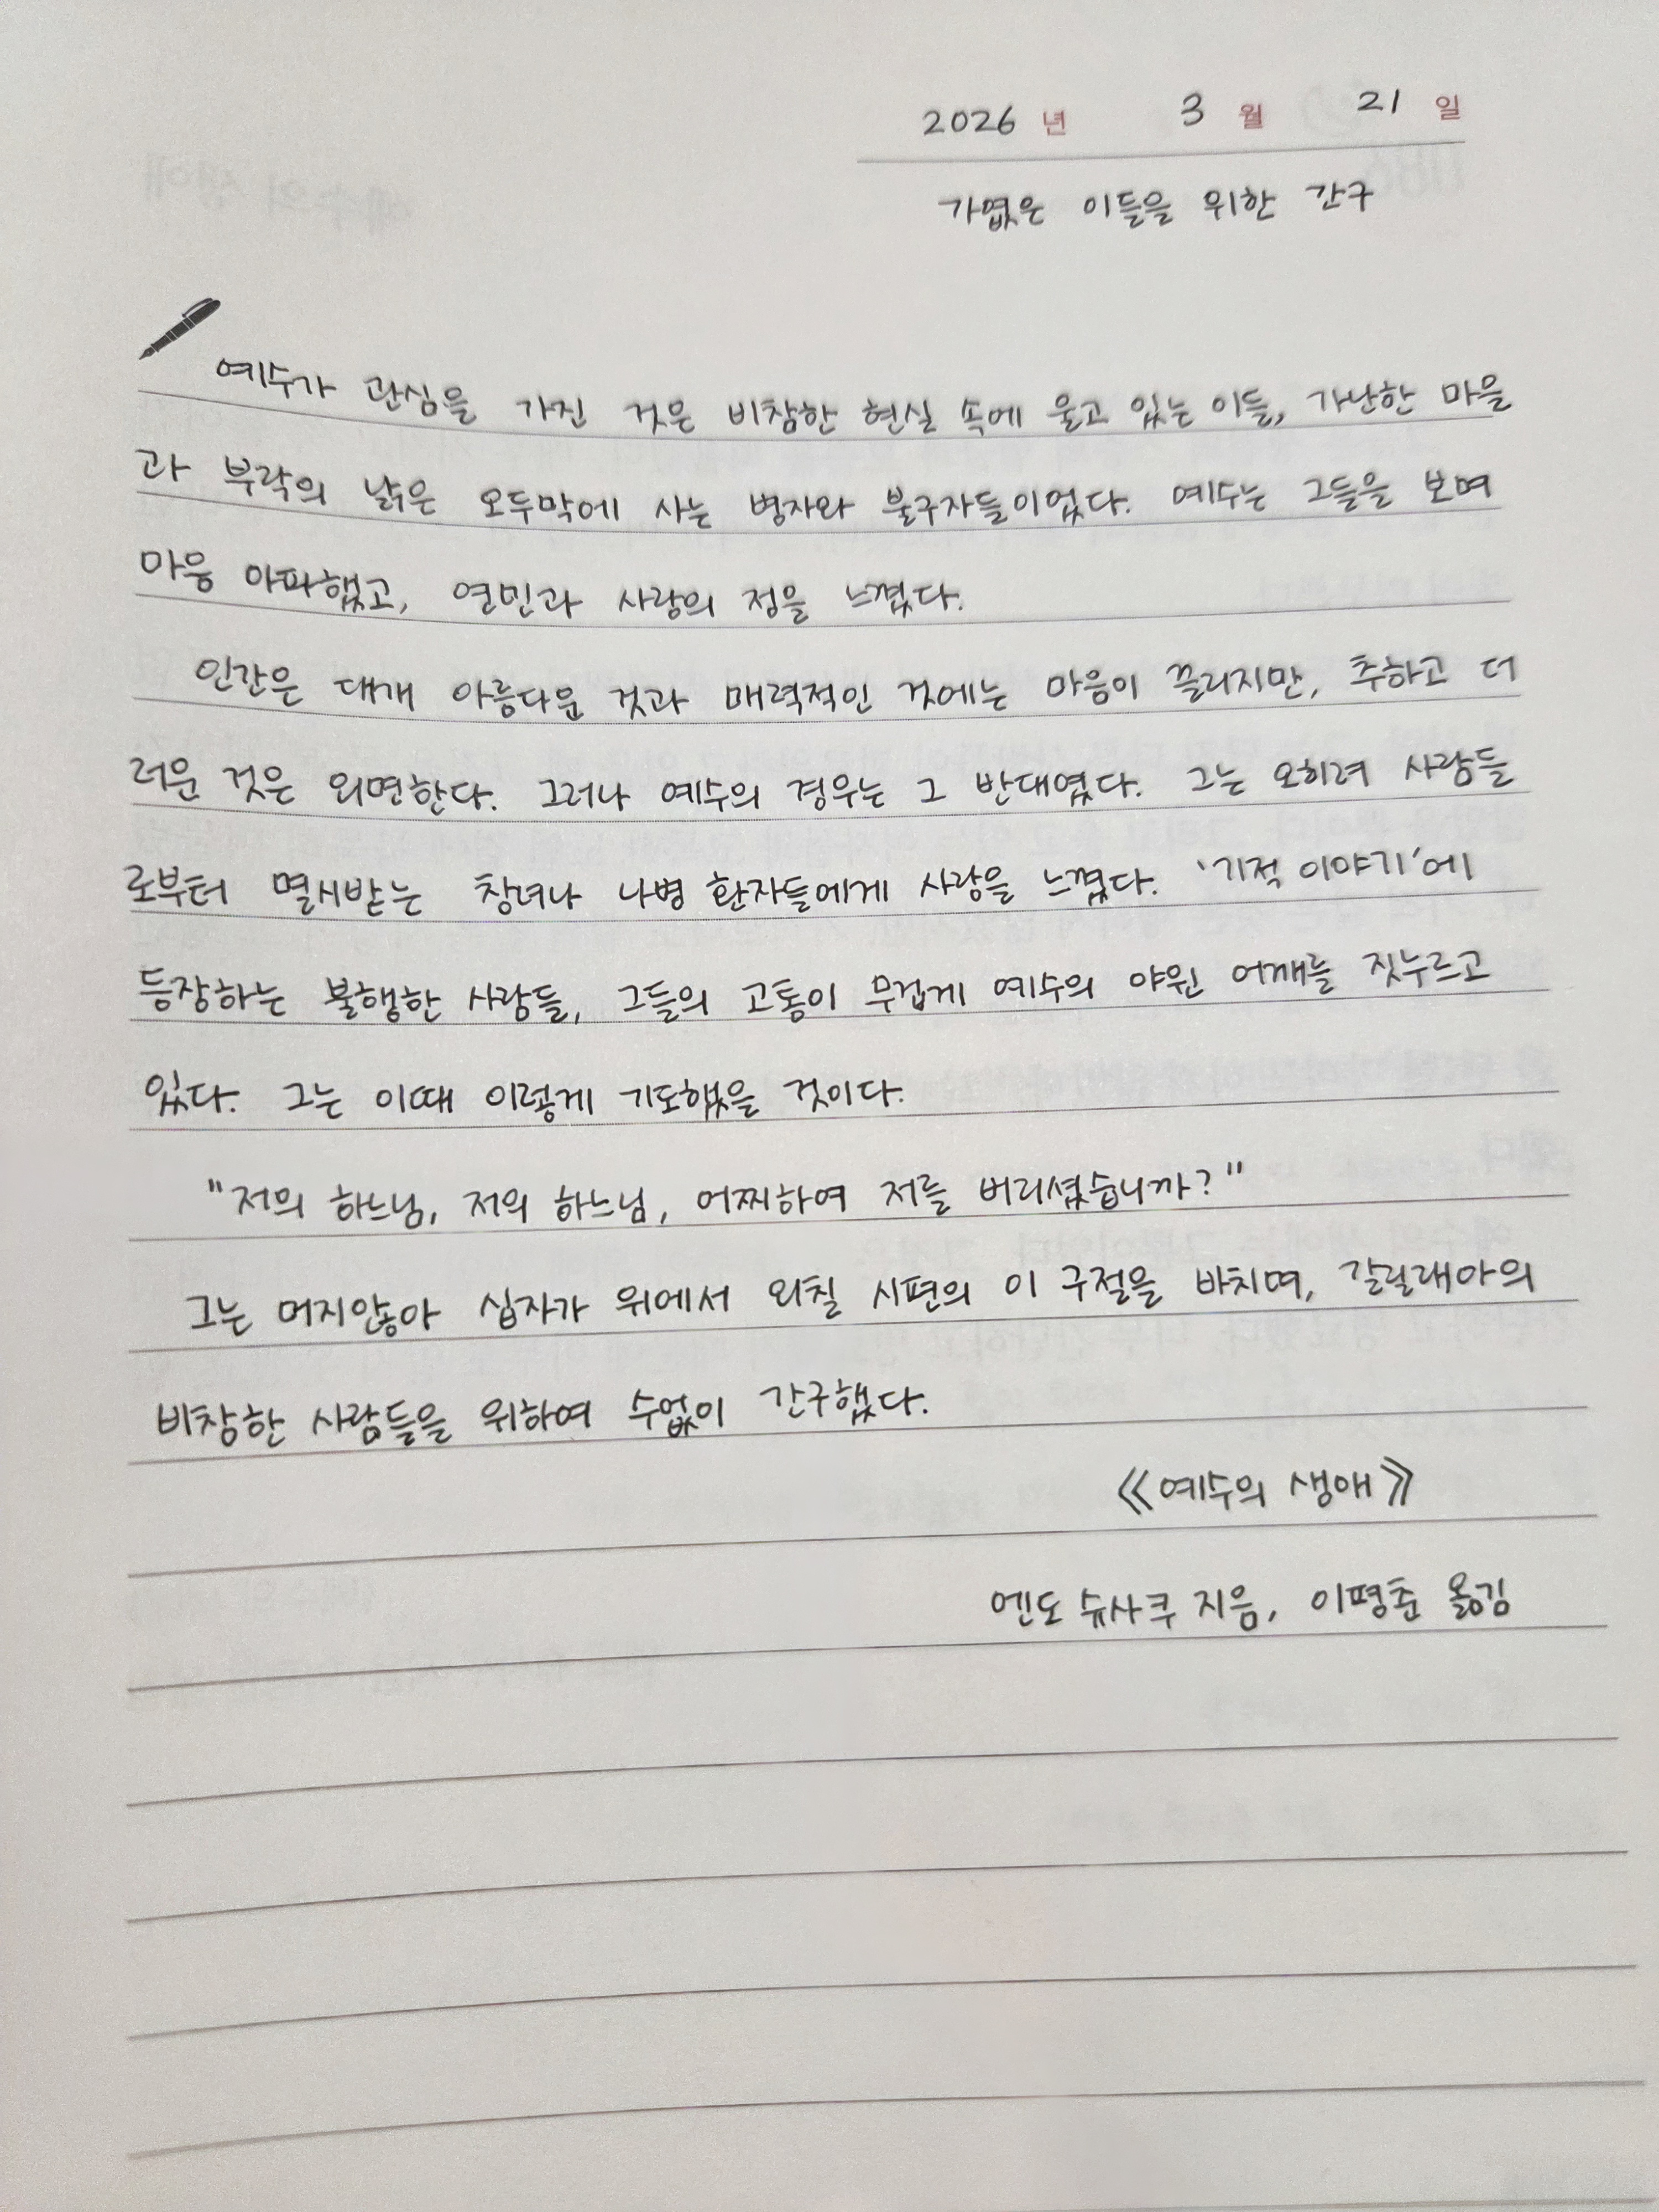 2026 년 3 월 21 일
가엾은 이들을 위한 간구
예수가 관심을 가진 것은 비참한 현실 속에 울고 있는 이들, 가난한 마을
과 부락의 낡은 오두막에 사는 병자와 불구자들이었다. 예수는 그들을 보며
마음 아파했고, 연민과 사랑의 정을 느꼈다.
인간은 대개 아름다운 것과 매력적인 것에는 마음이 끌리지만, 추하고 더
러운 것은 외면한다. 그러나 예수의 경우는 그 반대였다. 그는 오히려 사람들
로부터 멸시받는 창녀나 나병 환자들에게 사랑을 느꼈다. '기적 이야기'에
등장하는 불행한 사람들, 그들의 고통이 무겁게 예수의 야윈 어깨를 짓누르고
있다. 그는 이때 이렇게 기도했을 것이다.
"저의 하느님, 저의 하느님, 어찌하여 저를 버리셨습니까?"
그는 머지않아 십자가 위에서 외칠 시편의 이 구절을 바치며, 갈릴래아의
비참한 사람들을 위하여 수없이 간구했다.
《예수의 생애》
엔도 슈사쿠 지음, 이평춘 옮김